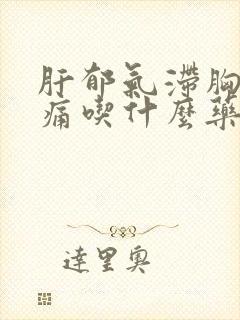 肝郁氣滯胸
痛喫什麼藥
達里奧